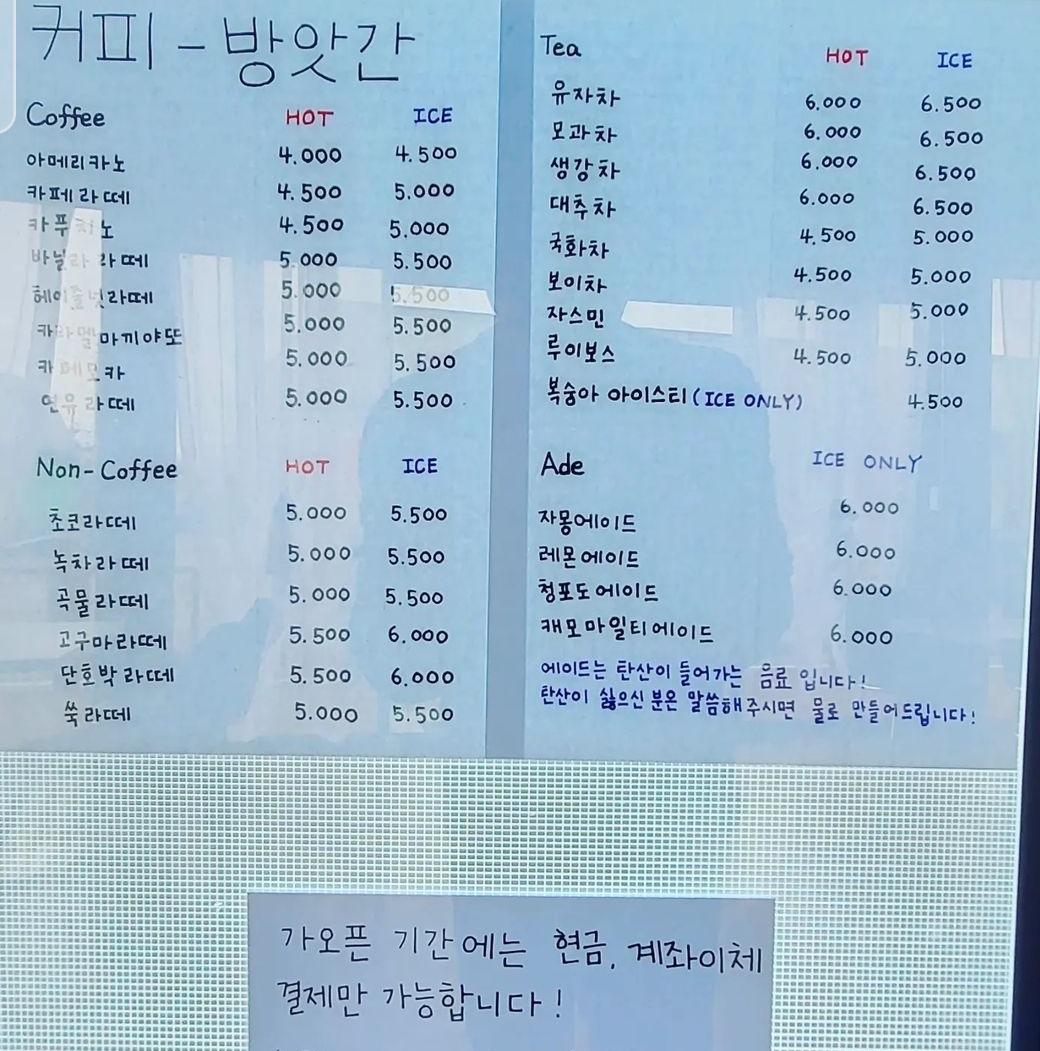 커피-방앗간
Coffee HOT ICE
아메리카노 4.000 4.500
카페라떼 4.500 5.000
카푸치노 4.500 5.000
바닐라 라떼 5.000 5.500
헤이즐넛라떼 5.000 5.500
카라멜마끼야또 5.000 5.500
카페모카 5.000 5.500
연유라떼 5.000 5.500
Non-Coffee HOT ICE
초코라떼 5.000 5.500
녹차라떼 5.000 5.500
곡물라떼 5.000 5.500
고구마라떼 5.500 6.000
단호박라떼 5.500 6.000
쑥라떼 5.000 5.500
Tea HOT ICE
유자차 6.000 6.500
모과차 6.000 6.500
생강차 6.000 6.500
대추차 6.000 6.500
국화차 4.500 5.000
보이차 4.500 5.000
자스민 4.500 5.000
루이보스 4.500 5.000
복숭아 아이스티(ICE ONLY) 4.500
Ade ICE ONLY
자몽에이드 6.000
레몬에이드 6.000
청포도에이드 6.000
캐모마일티에이드 6.000
에이드는 탄산이 들어가는 음료 입니다!
탄산이 싫으신 분은 말씀해주시면 물로 만들어드립니다!
가오픈 기간에는 현금, 계좌이체
결제만 가능합니다!